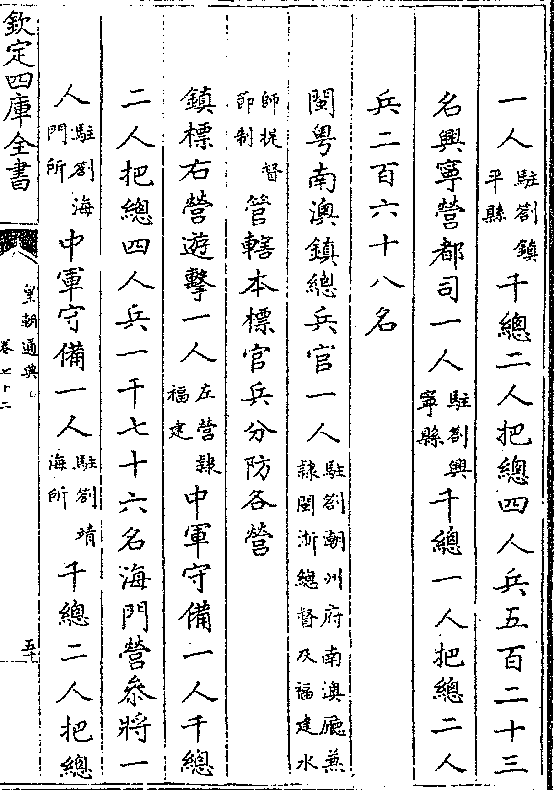 一人駐劄鎮平縣千總二人把總四人兵五百二十三
名興寧營都司一人駐劄興寧縣千總一人把總二人
兵二百六十八名
閩粤南澳鎮總兵官一人駐劄潮州府南澳廳兼隸閩浙總督及福建水
師提督節制管轄本標官兵分防各營
鎮標右營遊擊一人左營隸福建中軍守備一人千總
二人把總四人兵一千七十六名海門營叅將一
人駐劄海門所中軍守備一人駐劄靖海所千總二人把總
欽定四庫全書
皇朝通典
卷七十二
五十